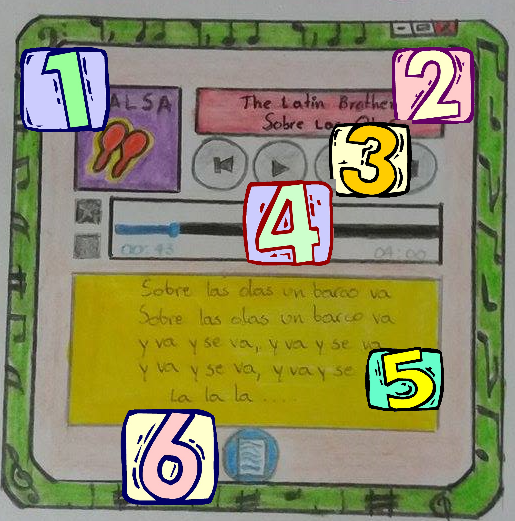 1
2
ALSA
The Latin Brother
Sobre Las
3
4
00:43
04:00
Sobre las olas un barco va
Sobre las olas un barco va
y va y se va, y va y se va
y va y se va, y va y se
La la la .....
5
6